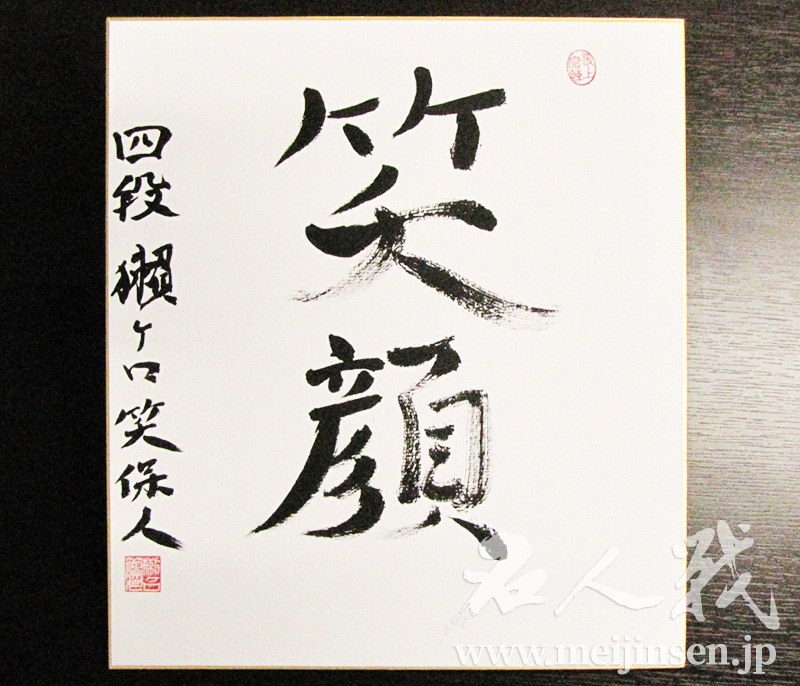 笑顔
四段 獺ヶ口笑保人
名人戦
www.meijinsen.jp